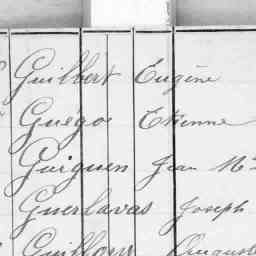 Guilbert Eugène
Guégo Etienne
Guiguen Jean M
Guerlavas Joseph
Guilloux Auguste